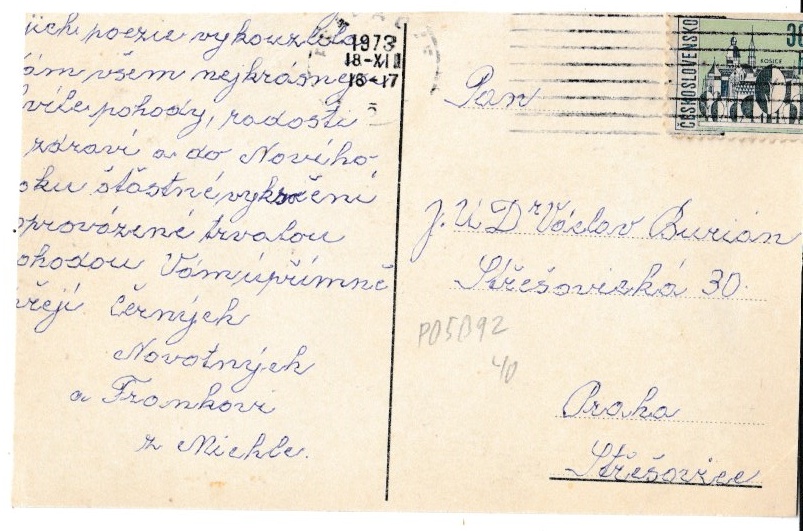 jich poezie vykouzlila
ám všem nejkrásnej-
víle pohody, radosti
zdraví a do Nového
oku šťastné vykročení
oprovázené trvalou
ohodou Vám upřímně
řejí černých
Novotných
a Frankovi
z Michle.
1973
18-XII
16-17
ČESKOSLOVENSKO
KOŠICE
30
Pan
J. U Dr Václav Burián
Střešovická 30.
P05B92
40
Praha
Střešovice